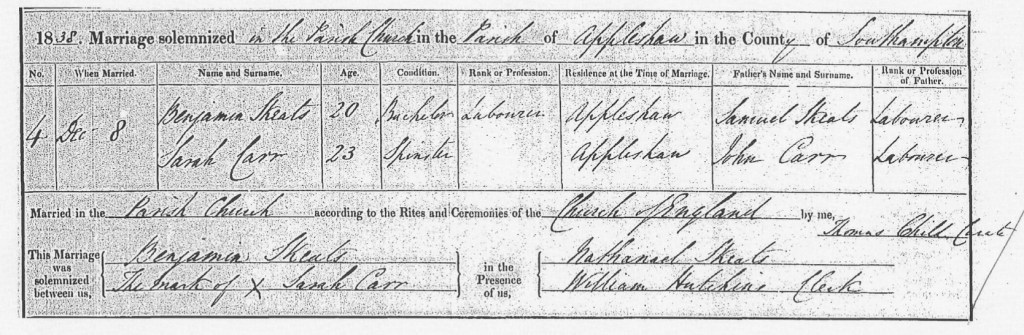 1838. Marriage solemnized in the Parish Church in the Parish of Appleshaw in the County of Southampton
No. When Married. Name and Surname. Age. Condition. Rank or Profession. Residence at the Time of Marriage. Father's Name and Surname. Rank or Profession of Father.
4 Dec 8 Benjamin Skeats 20 Bachelor Labourer Appleshaw Samuel Skeats Labourer
Sarah Carr 23 Spinster Appleshaw John Carr Labourer
Married in the Parish Church according to the Rites and Ceremonies of the Church of England by me,
Thomas Child Curate
This Marriage was solemnized between us, Benjamin Skeats in the Presence of us, Nathanael Skeats
The mark of X Sarah Carr William Hutchins Clerk